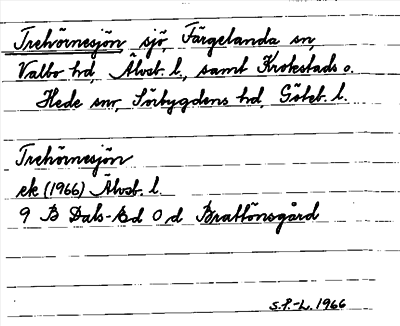 Trehörnesjön sjö, Färgelanda sn,
Valbo hd, Älvsb. l., samt Krokstads o.
Hede snr, Sörbygdens hd, Göteb. l.
Trehörnesjön
ek (1966) Älvsb. l.
9 B Dals-Ed 0 d Brattönsgård
S.P.-L. 1966